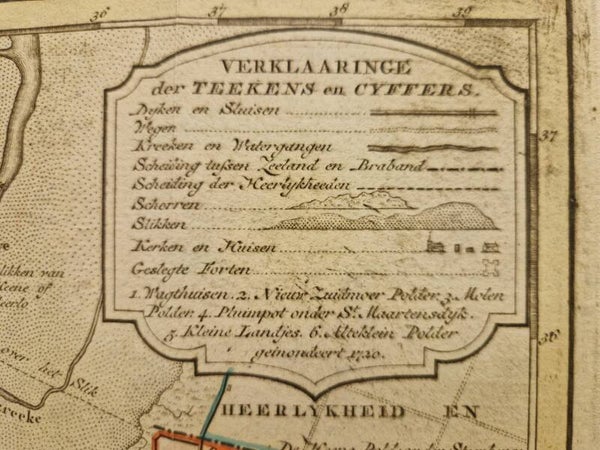 36 37 38 39
VERKLAARINGE
der TEEKENS en CYFFERS.
Dyken en Sluisen
Wegen
Kreeken en Watergangen
Scheiding tussen Zeeland en Braband
Scheiding der Heerlykheeden
Schorren
Slikken
Kerken en Huisen
Geslegte Forten
1. Wagthuisen. 2. Nieuw Zuidmoer Polder. 3. Molen
Polder. 4. Pluimpot onder St. Maartensdyk.
5. Kleine Landjes. 6. Alteklein Polder
geinondeert 1720.
37
36
likken van
eene of
ierlo
over het Slik
reeke
HEERLYKHEID EN